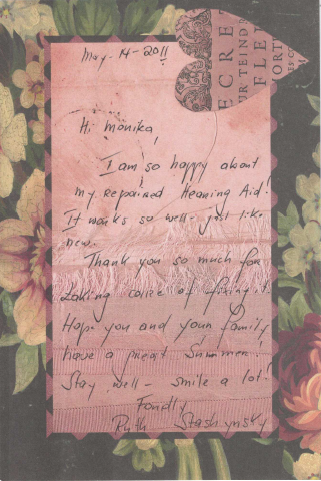 May-14-2011
ECRET
UR TEINDR
FLE
ORT
Hi Monika,
I am so happy about
my Repaired Hearing Aid!
It works so well - just like
new.
Thank you so much for
taking care of fixing it
Hope you and your family
have a great Summer!
Stay well - smile a lot!
Fondly
Ruth Stashynsky